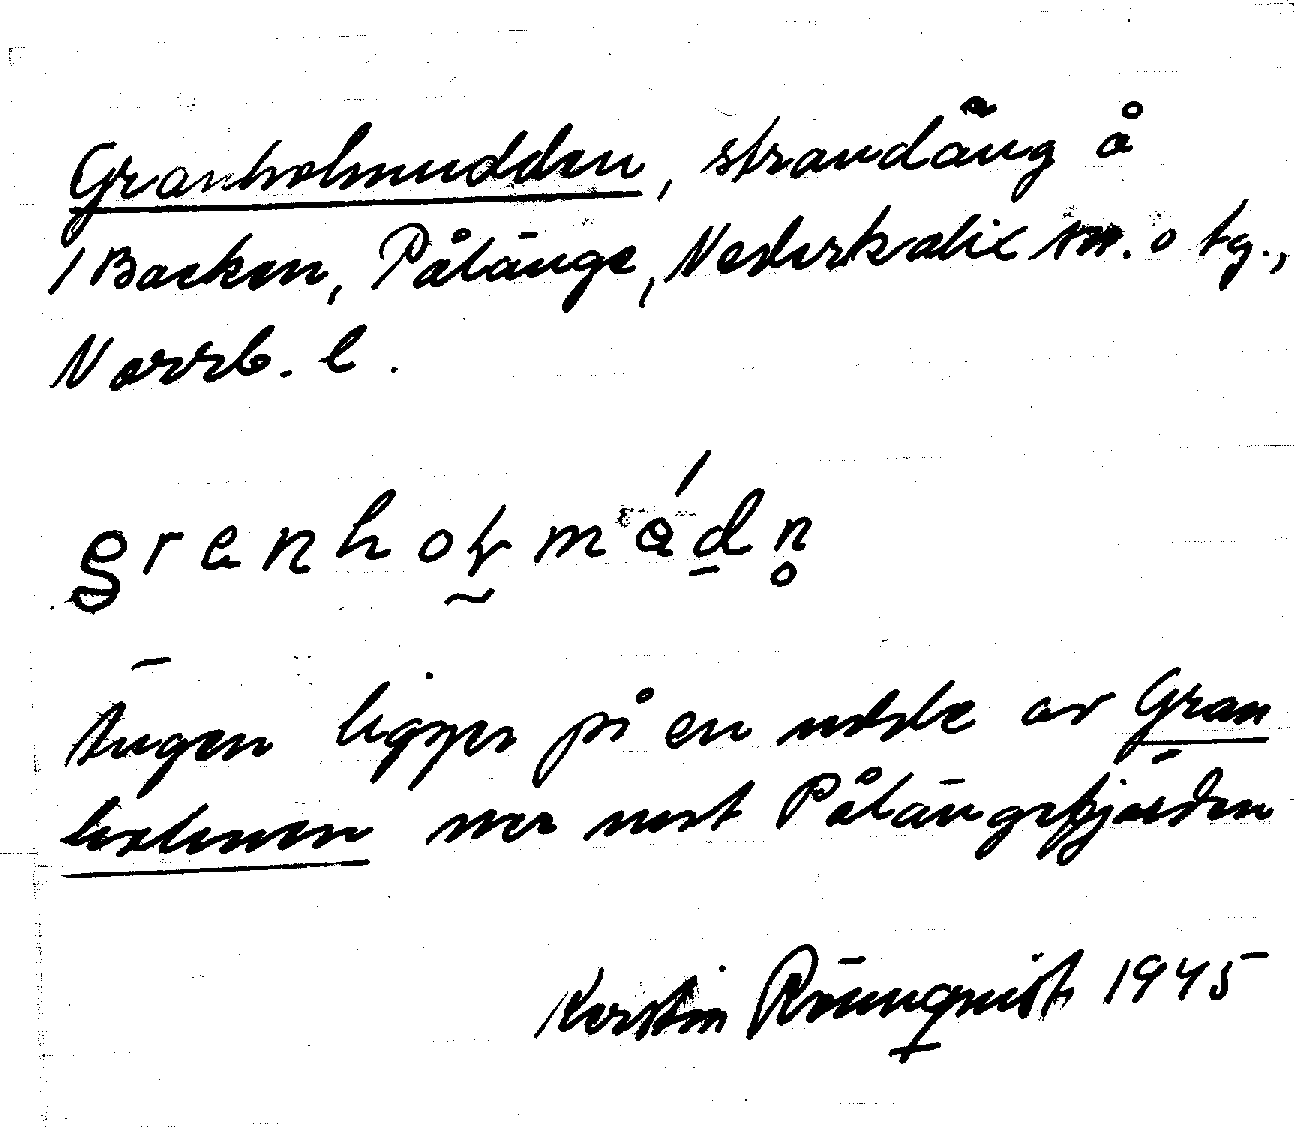 Granholmudden, strandäng å
/Backen, Pålänge, Nederkalix sn. o tg.,
Norrb. l.
granholmádn
Ängen ligger på en udde av Gran
holmen mer mot Pålängefjärden
Kerstin Rönnqvist 1945